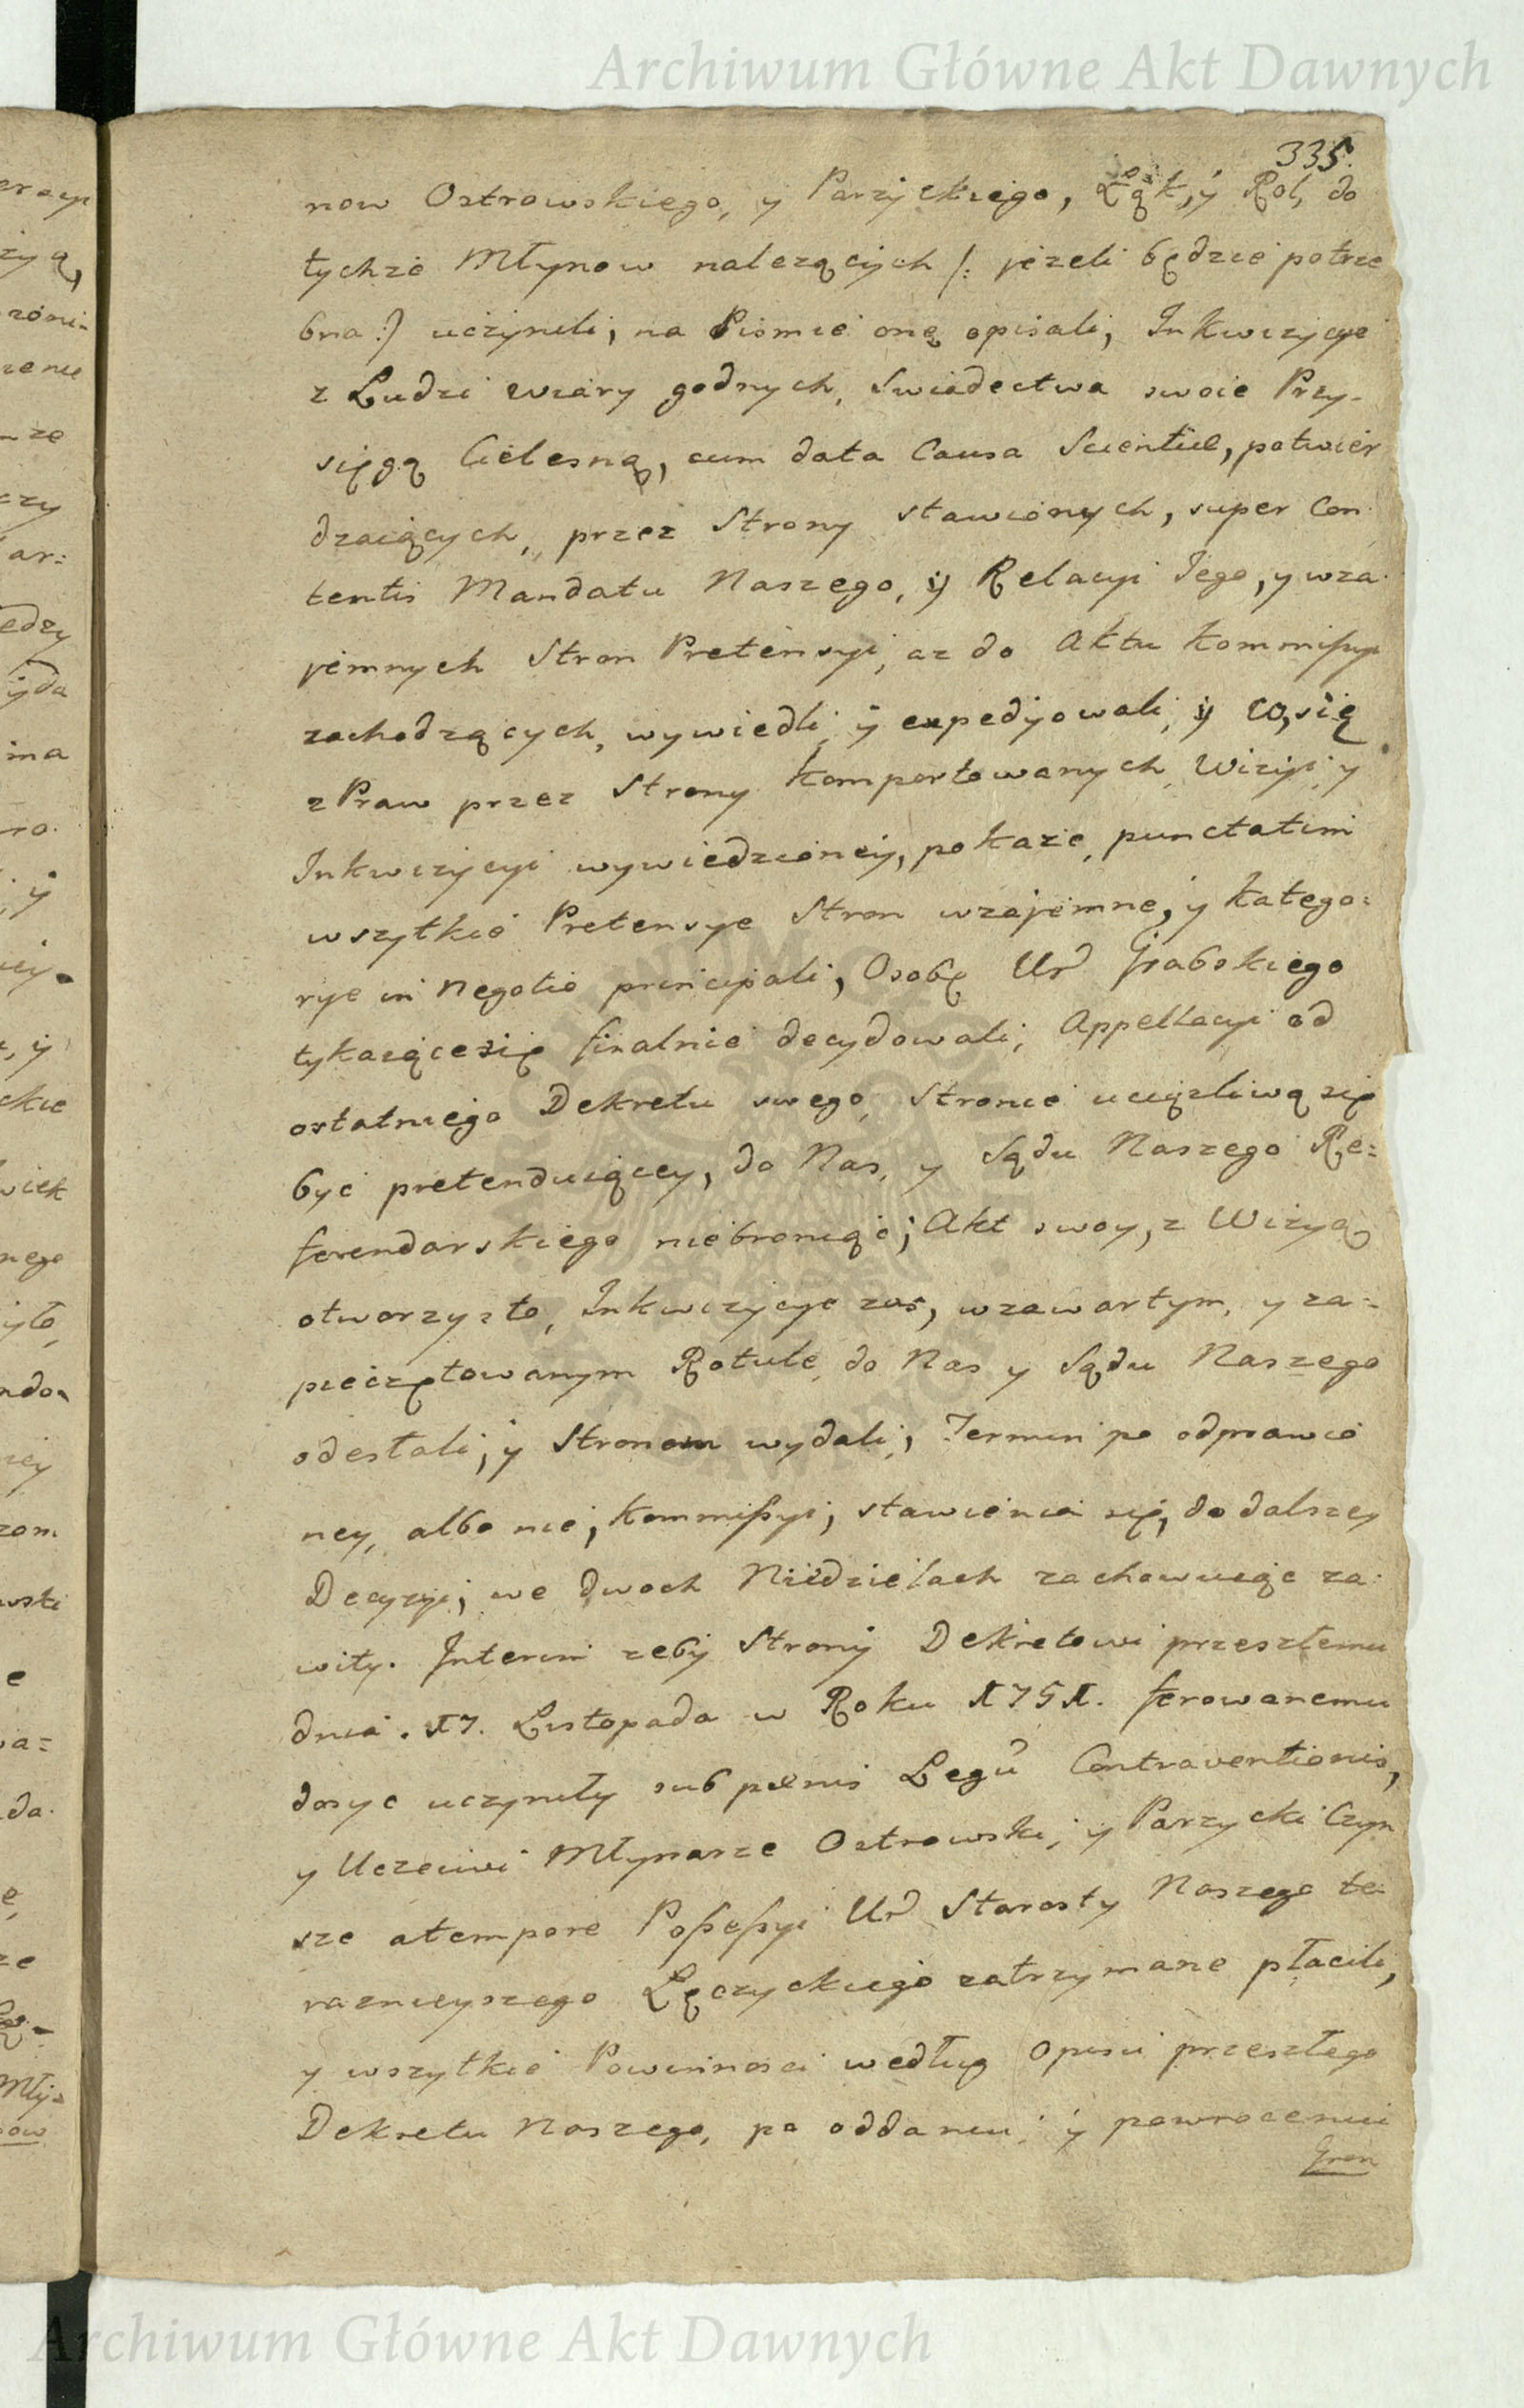 Archiwum Główne Akt Dawnych
335.
now Ostrowskiego, y Parzyckiego, Łąk, y Rol, do
tychże Młynow należących /: jeżeli będzie potrze
bna :/ uczynili, na Pismie onę opisali, Inkwizycye
z Ludzi wiary godnych, Swiadectwa swoie Przy-
sięgą Cielesną, cum data Causa Scientiæ, potwier
dzaiących, przez Strony stawionych, super Con
tentis Mandatu Naszego, y Relacyi Jego, y wza
jemnych Stron Pretensyi, az do Aktu Kommissyi
zachodzących, wywiedli, y expedyowali, y co, się
z Praw przez Strony komportowanych, Wizyi, y
Inkwizycyi wywiedzioney, pokaze, punctatim
wszytkie Pretensye Stron wzajemne, y Katego:
rye in Negotio principali, Osobę Ur Grabskiego
tykaiącesię finalnie decydowali; Appellacyi od
ostatniego Dekretu swego, Stronie uciązliwą się
być pretenduiącey, do Nas, y Sądu Naszego Re:
ferendarskiego niebroniąc; Akt swoy, z Wizyą
otworzysto, Inkwizycye zas, wzawartym, y za:
pieczętowanym Rotule, do Nas y Sądu Naszego
odesłali, y Stronom wydali; Termin po odprawio
ney, albo nie, Kommissyi, stawienia się, do dalszey
Decyzyi, we dwoch Niedzielach zachowuiąc za
wity. Interim zeby Strony Dekretowi przeszłemu
dnia. 17. Listopada w Roku 1751. ferowanemu
dosyc uczyniły sub pœnis Legū Contraventionis,
y Uczciwi Młynarze Ostrowski, y Parzycki Czyn
sze atempore Possessyi Ur Starosty Naszego te
raznieyszego Łęczyckiego zatrzymane płacili,
y wszytkie Powinnosci według Opisu przeszłego
Dekretu Naszego, po oddaniu, y powroceniu
Gron
Archiwum Główne Akt Dawnych